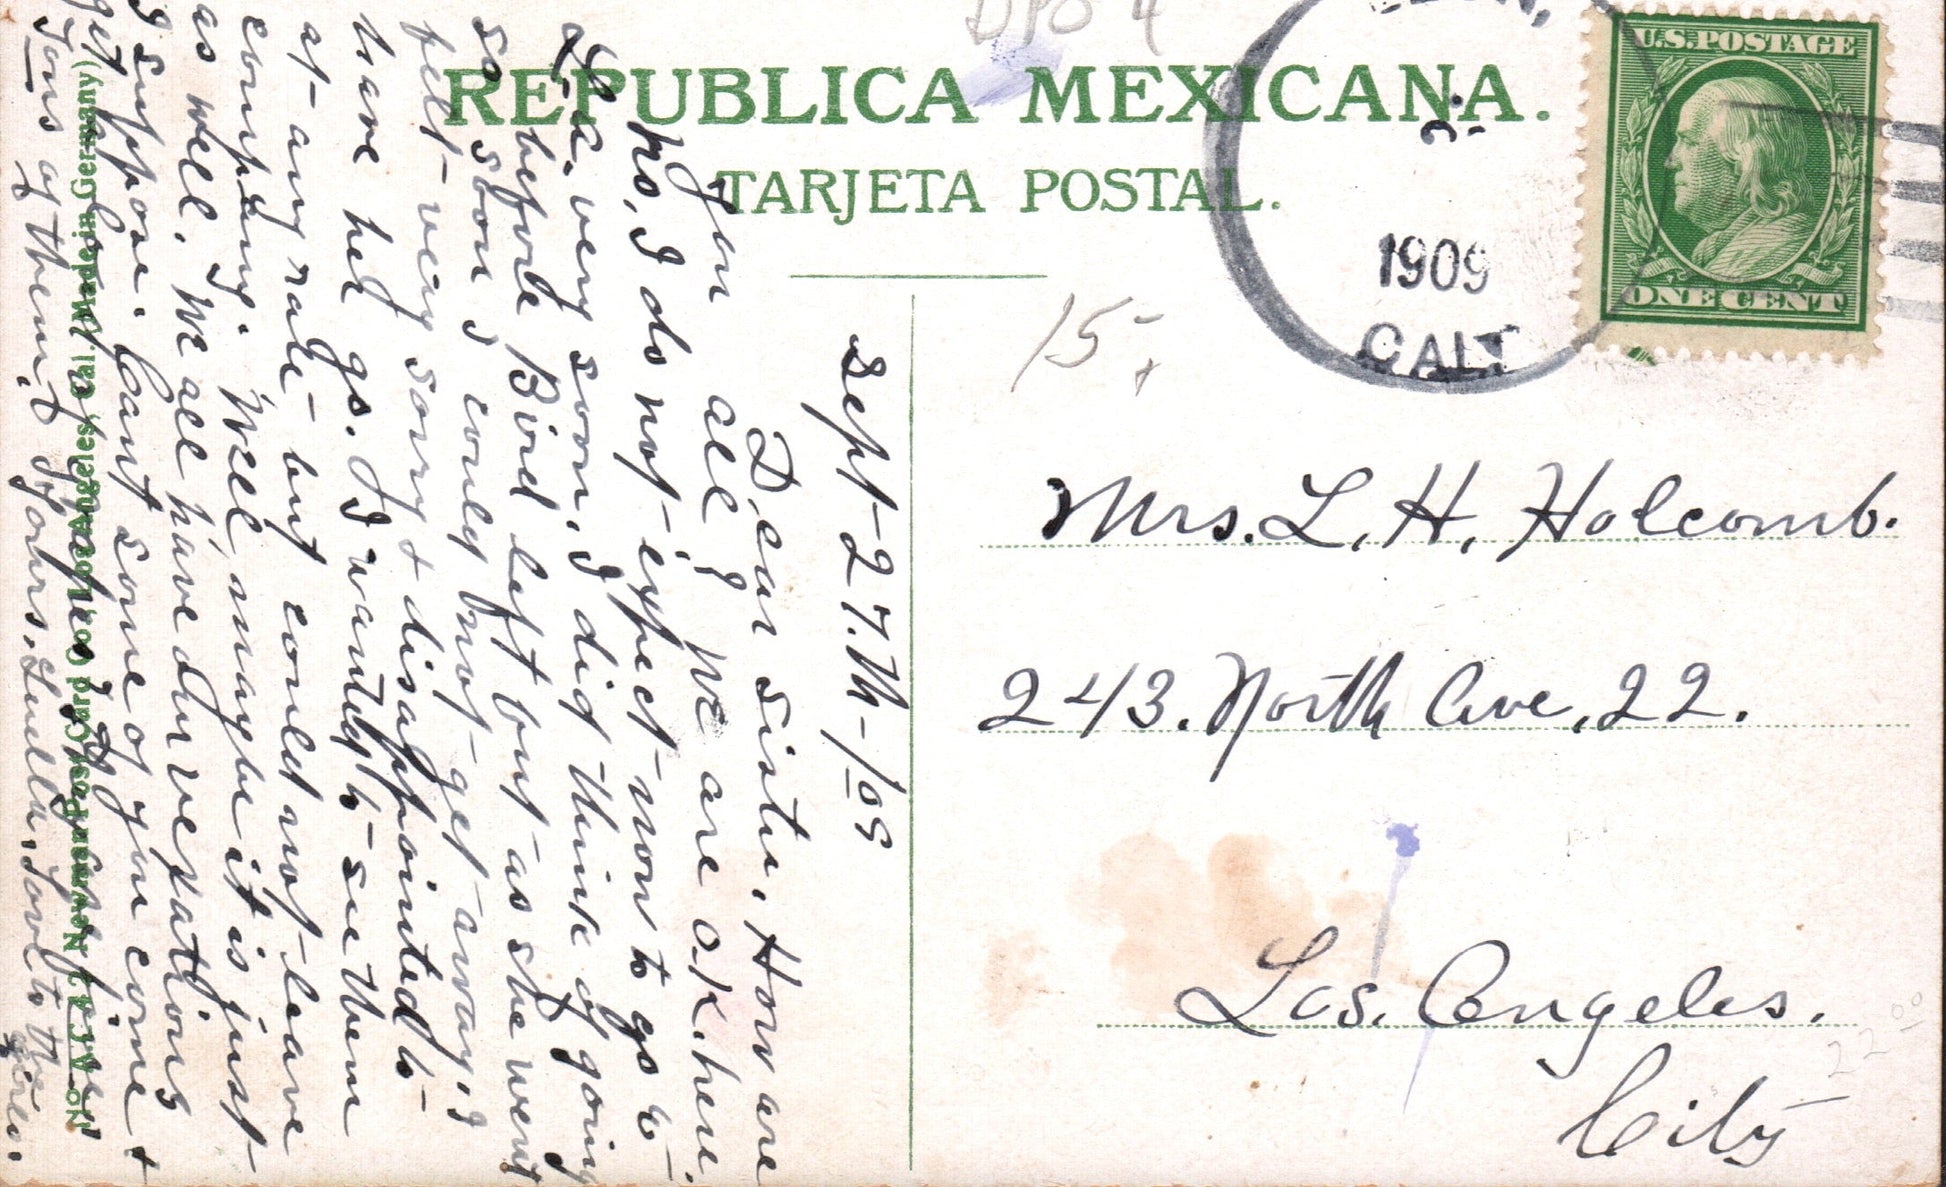 DPO 4
REPUBLICA MEXICANA.
TARJETA POSTAL.
1909
CALIF
U.S. POSTAGE
ONE CENT
15
Mrs. L. H. Holcomb.
243. North Ave, 22.
Los. Angeles.
City
22 00
Sept-27.th-/09
Dear sister, How are
you all? We are O.K. here.
No, I do not-expect-now to go to-
L.a. very soon, I did think of going
before Bird left but as she went
so soon I could not-get-away, I
felt-very sorry & disappointed to-
have her go. I wanted to-see them
at-any rate-but could not-leave
company. Well, maybe it is just
as well. We all have our vexations
I suppose. Cant some of you come &
get
Tons of them. Yours, Luella, Love to the
girls.
Newman Post Card Co., Los Angeles, Cal. (Made in Germany)